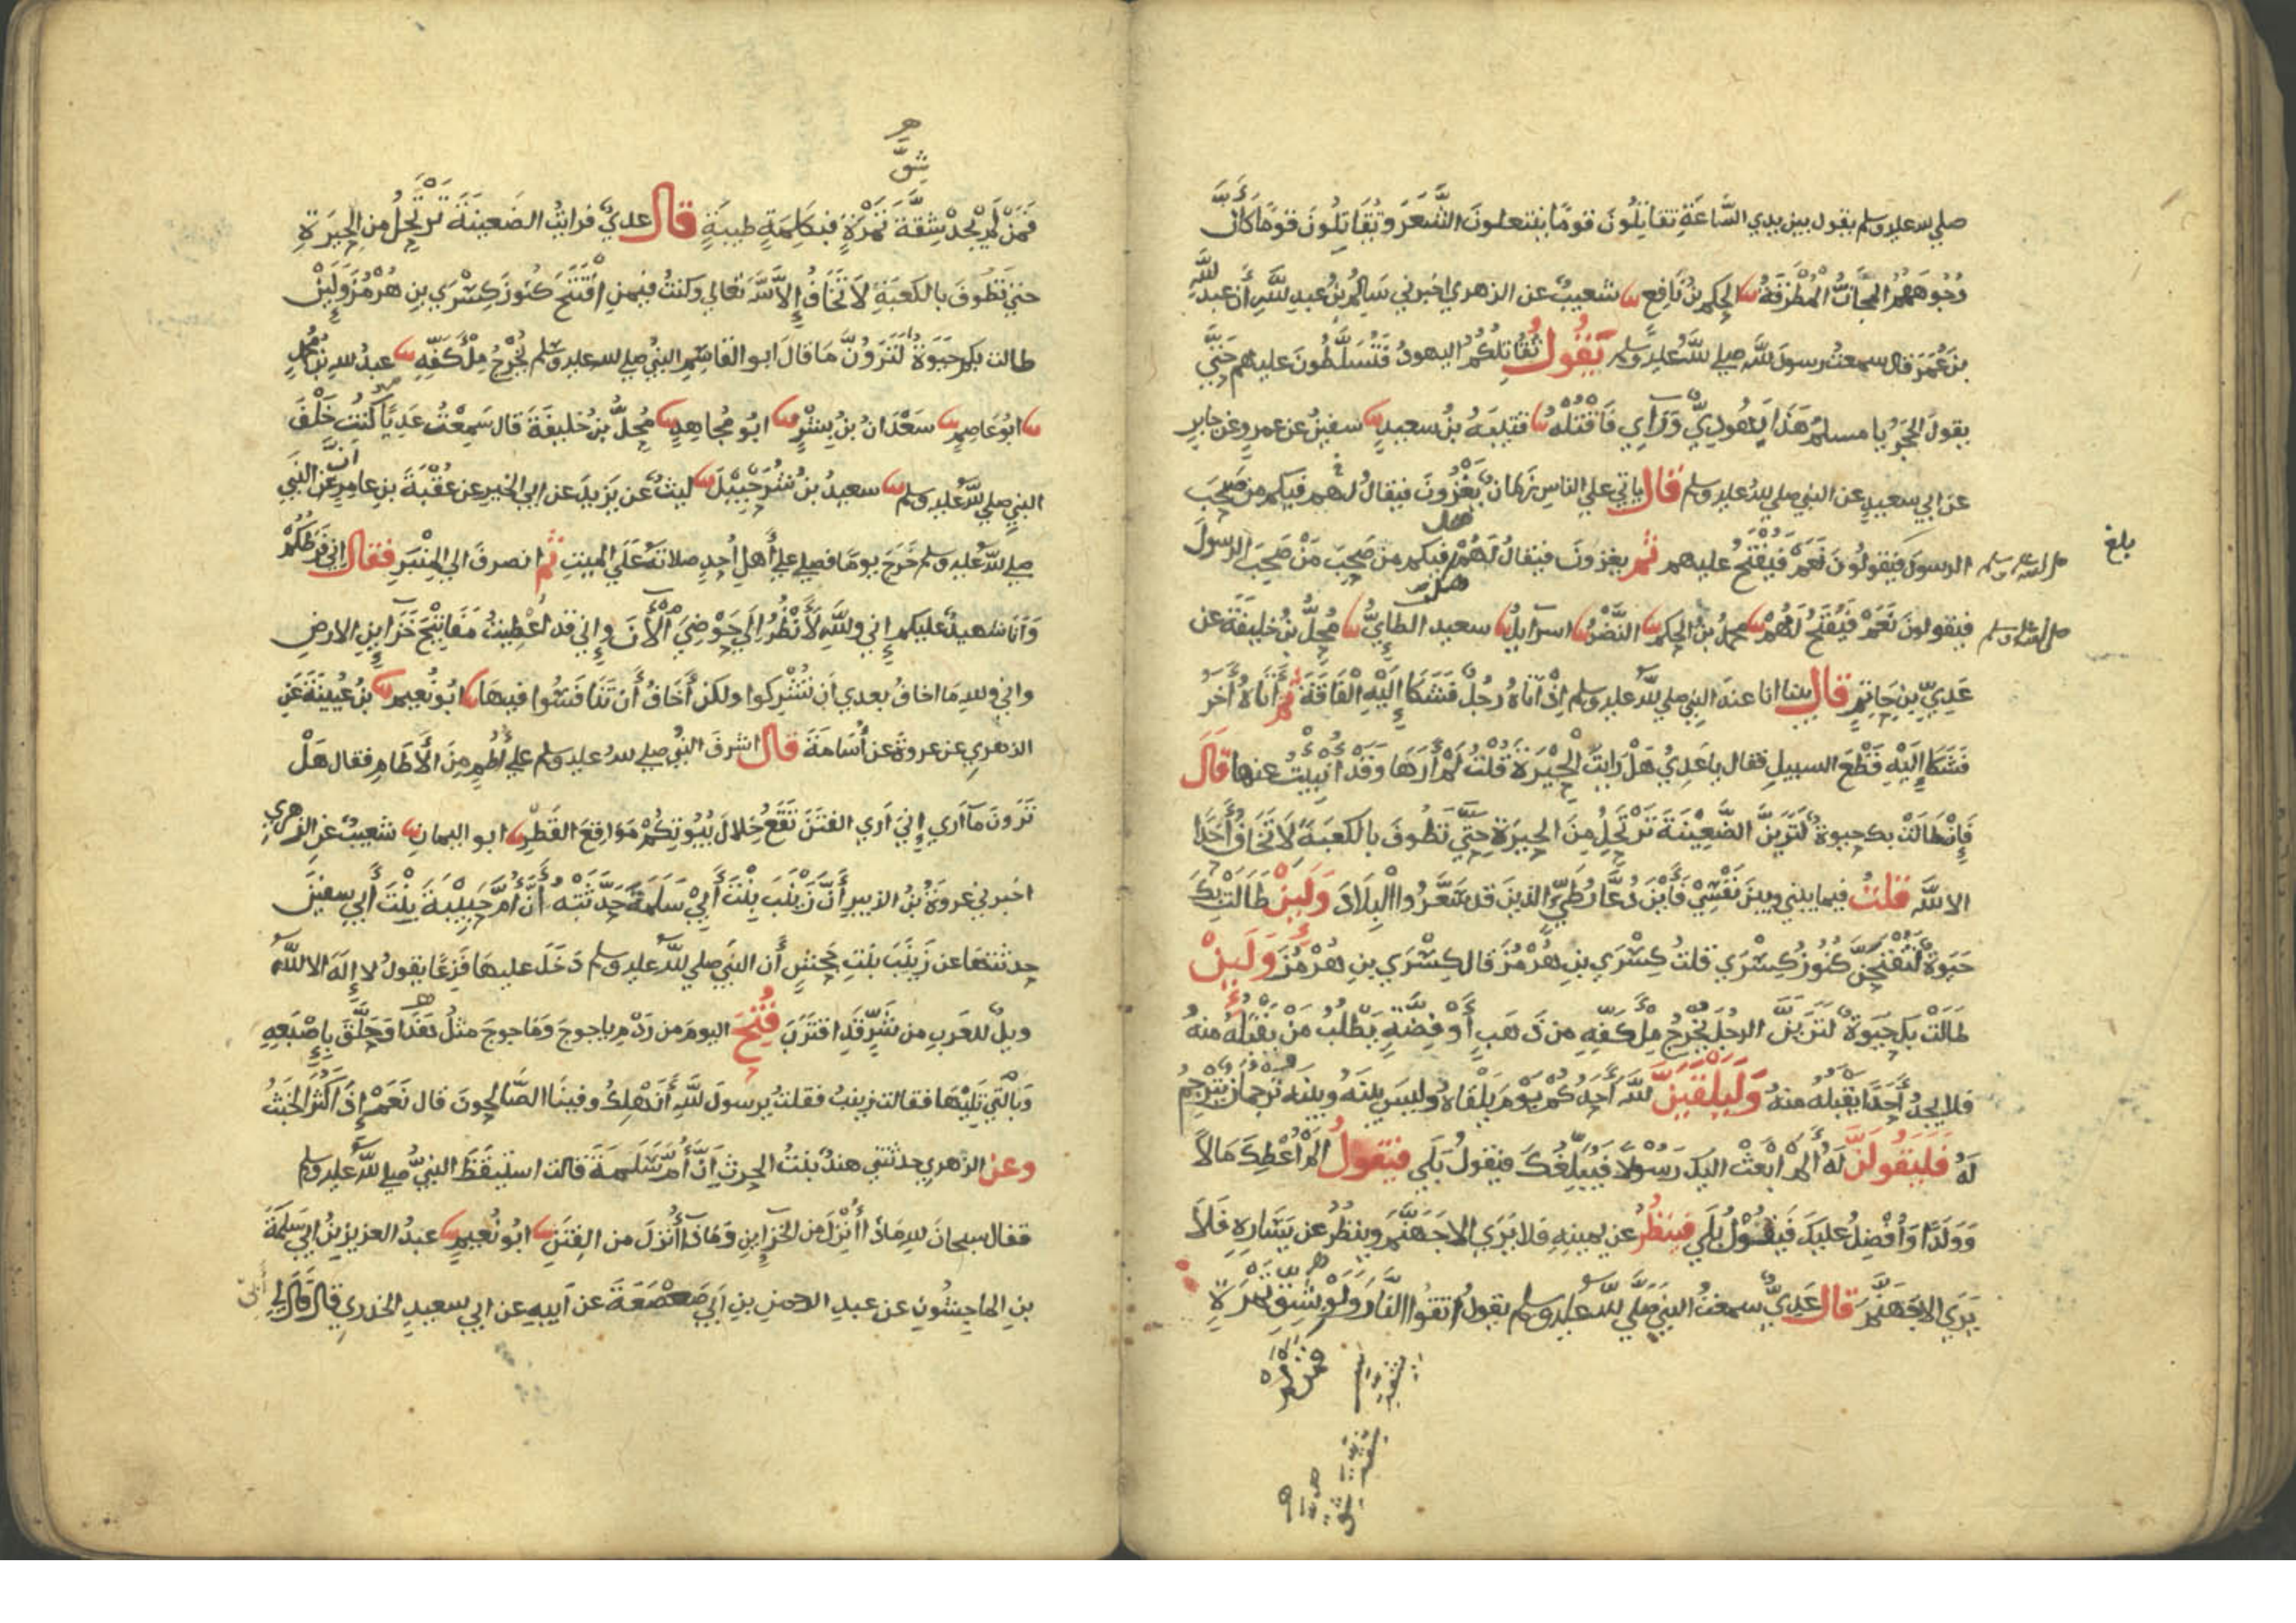 صلي الله عليه وسلم يقول بين يدي السَّاعَةِ تقاتِلُونَ قومًا ينتعلونَ الشَّعَرَ وتُقَاتِلُونَ قومًا كَانَّ
وُجُوهَهُمْ المَجَانُّ المُطْرَقَةُ الحكم بنُ نَافِع شعيبٌ عن الزهري اخبرني سَالِمُ بنُ عبدِ اللهِ أن عبدَ اللهِ
بنَ عُمَرَ قال سمعتُ رسولَ الله صلي اللهُ عليه وسلم يَقُولُ تُقَاتِلُكُمُ اليهودُ فَتُسَلَّطُونَ عليهم حَتَّي
يقولَ الحَجَرُ يا مسلمُ هَذَا يَهُودِيٌّ وَرَاءي فَاقْتُلْهُ قتيبَةُ بنُ سعيدٍ سفينُ عن عمرٍو عن جابرٍ
عن ابي سعيدٍ عن النبي صلي اللهُ عليه وسلم قَالَ ياتي علي الناسِ زمانٌ يَغْزُونَ فيقالُ لهم فيكم من صَحِبَ
الرسولَ فيَقولُونَ نَعَمْ فَيُفْتَحُ عليهم ثُمَّ يغزونَ فيقالُ لَهُمْ هل فيكم من صَحِبَ مَنْ صَحِبَ الرسولَ
صلي الله عليه وسلم
بلغ
فيقولونَ نَعَمْ فَيُفْتَحُ لَهُمْ محمدُ بنُ الحكم النَّضْرُ اسرايلُ سعيد الطايُّ مُحِلُّ بنُ خليفَةَ عن
صلي الله عليه وسلم
عَدِيِّ بنِ حَاتِمٍ قَالَ بينا انا عندَ النبيِ صلي الله عليه وسلم اِذْ اَتَاهُ رَجُلٌ فَشَكَا إِلَيْهِ الْفَاقَةَ ثُمَّ أَتَاهُ أَخَرُ
فَشَكَا إِلَيْهِ قَطْعَ السبيلِ فقال يا عَدِيُّ هَلْ رَايتَ الحِيْرَةَ قُلْتُ لَمْ أَرَهَا وَقَدْ أُنْبِيتُ عنها قَالَ
فَإِنْ طَالَتْ بك حيوةٌ لَتَرَيَنَّ الضَّعِيْنَةَ تَرْتَحِلُ مِنَ الحِيرَةِ حَتَّي تطُوفَ بالكعبَةِ لَا تَخَافُ أَحَدًا
الا اللهَ قلتُ فيما بيني وبينَ نَفْسِيْ فَأَيْنَ دُعَّارُ طَيِّءٍ الذينَ قد سَعَّرُوا الْبِلَادَ وَلَئِنْ طَالَتْ بِكَ
حَيَوةٌ لَتُفْتَحَنَّ كُنُوزُ كِسْرَي قلتُ كِسْرَي بنِ هُرْمُزَ قال كِسْرَي بنِ هُرْمُزَ وَلَئِنْ
طَالَتْ بك حَيَوةٌ لَتَرَيَنَّ الرجُلَ يُخْرِجُ مِلْأَ كَفِّهِ من ذَهَبٍ أَوْ فِضَّةٍ يَطْلُبُ مَنْ يَقْبَلُهُ منهُ
فلا يجدُ أَحَدًا يَقْبَلُهُ منهُ وَلَيَلْقَيَنَّ اللهَ أَحَدُكُمْ يَوْمَ يَلْقَاهُ وليسَ بينَهُ وبينَهُ تُرْجُمَانٌ يُتَرْجِمُ
لَهُ فَلَيَقُولَنَّ لَهُ أَلَمْ أَبْعَثْ اليكَ رَسُوْلًا فَيُبَلِّغُكَ فيَقولُ بَلَي فيَقولُ أَلَمْ أُعْطِكَ مَالًا
وَوَلَدًا وَأُفْضِلْ عليكَ فَيَقُوْلُ بَلَي فَيَنظُرُ عن يمينِهِ فلا يَرَي الا جَهَنَّمَ وينظُرُ عن يَسَارِهِ فَلَا
يَرَي الا جَهَنَّمَ قَالَ عَدِيٌّ سمعتُ النبيَ صَلَّي اللهُ عليه وسلم يقولُ اتقُوا النَّارَ وَلَوْ بشِقِّ تَمْرَةٍ
فمن لم
فَمَنْ لَمْ يَجِدْ شِقَّةَ تَمْرَةٍ فبكَلِمَةٍ طيبَةٍ قَالَ عديٌّ فرايتُ الضَعينَةَ تَرْتَحِلُ من الحِيرَةِ
شِقَّ
حتي تَطُوفَ بالكعبَةِ لَا تَخَافُ إِلَّا اللهَ تعالي وكنتُ فيمنِ افْتَتَحَ كُنُوزَ كِسْرَي بنِ هُرْمُزَ وَلَئِنْ
طالت بكم حَيَوةٌ لَتَرَوُنَّ مَا قالَ ابو القاسِمِ النبيُ صلي الله عليه وسلم يُخْرِجُ مِلْأَ كَفِّهِ عبدُ اللهِ بنُ محمدٍ
ابُو عَاصِمٍ سَعْدَانُ بنُ بِشْرٍ ابُو مُجَاهِدٍ مُحِلُّ بنُ خليفَةَ قال سَمِعْتُ عَدِيًّا كُنْتُ خَلْفَ
النبي صلي اللهُ عليه وسلم سعيدُ بنُ شُرَحْبِيْلَ ليثٌ عن يَزيدَ عن ابي الخيرِ عن عُقْبَةَ بنِ عامرٍ عن النبي
انَّ
صلي اللهُ عليه وسلم خَرَجَ يومًا فصلي علي أَهلِ اُحدٍ صلاتَهُ عَلَي الميتِ ثُمَّ انصرفَ الي المِنْبَرِ فقالَ إني فَرَطُكُمْ
وَأنَا شهيدٌ عليكم إني واللهِ لَأَنْظُرُ إلَي حَوْضِيَ الْأَنَ وإني قد أُعْطِيتُ مَفَاتِيْحَ خَزَاينِ الارضِ
واني واللهِ مَا اخافُ بعدي أن تُشْرِكوا ولكن أَخَافُ أَن تَنَافَسُوا فيهَا ابُو نُعيمٍ بنُ عُيينَةَ عَنِ
الزهري عن عروةَ عن أُسَامَةَ قَالَ اشرفَ النبيُ صلي اللهُ عليه وسلم علي أُطُمٍ مِنَ الأَطَامِ فقال هَلْ
تَرَونَ مَا أَرَي إنيَ أري الفتَنَ تَقَعُ خِلَالَ بُيُوتِكُمْ مَوَاقِعَ القَطْرِ ابو اليمانِ شعيبٌ عن الزهري
اخبرني عروَةُ بنُ الزبيرِ أَنَّ زَيْنَبَ بِنْتَ أَبِيْ سَلَمَةَ حَدَّثَتْهُ أَنَّ أُمَّ حَبِيْبَةَ بِنْتَ أَبي سفينَ
حدثتهَا عن زَينَبَ بنتِ جَحْشٍ أَن النبيَ صلي اللهُ عليه وسلم دَخَلَ عليهَا فَزِعًا يقولُ لا إلَهَ الا اللهُ
ويلٌ للعَربِ من شَرٍّ قَدِ اقتَرَبَ فُتِحَ اليومَ من رَدْمِ ياجوجَ ومَاجوجَ مثلُ هَذَا وَحَلَّقَ بِإِصْبَعِهِ
وَبالَّتي تَلِيْهَا فقالت زينبُ فقلتُ يرسولَ اللهِ أَنَهْلِكُ وفينَا الصَّالحونَ قال نَعَمْ إِذَا كَثُرَ الخَبَثُ
وعن الزهري حدثتني هندٌ بنتُ الحرثِ اَنَّ أُمَّ سَلَمَةَ قالت استيقَظَ النبيُّ صلي اللهُ عليه وسلم
فقال سبحانَ اللهِ مَاذَا أُنْزِلَ من الخزَاينِ وَمَاذَا أُنْزِلَ من الفِتَنِ ابُو نُعَيمٍ عبدُ العزيزِ بنُ ابي سَلَمَةَ
بنِ الماجِشُونِ عن عبدِ الرحمنِ بنِ أَبي صَعْصَعَةَ عن أَبيهِ عن ابي سعيدٍ الخدري قالَ قَالَ لي